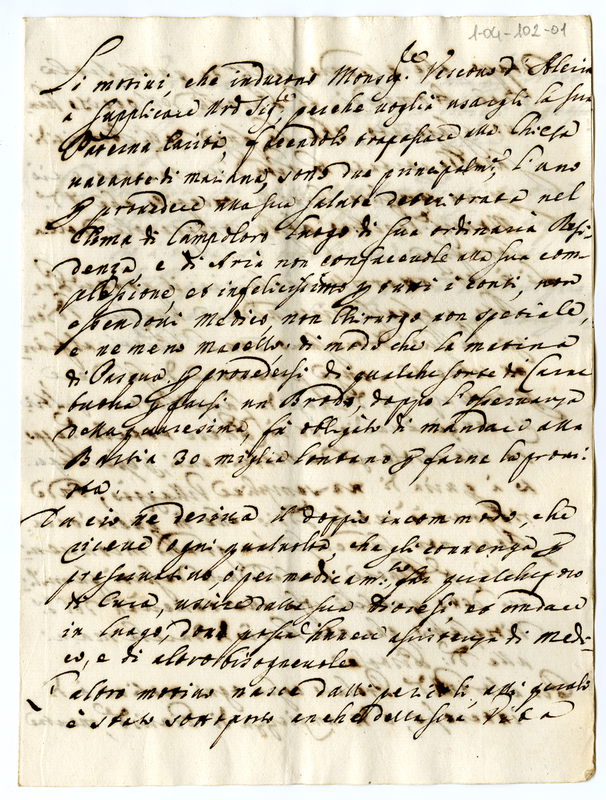 1-04-102-01
Li motivi, che inducono Monsig.re Vescovo d'Aleria
a supplicare Nro Sig.re, perche voglia usargli la sua
Paterna Carità, facendolo trapassare alla Chiesa
vacante di Mariana, sono due principalm.te L'uno
p provedere alla sua salute deteriorata nel
Clima di Campoloro luogo di sua ordinaria Resi-
denza, e di Aria non confacevole alla sua com-
plessione, et infelicissimo p tutti i conti, non
essendovi Medico, non Chirurgo non speziale,
e ne meno macello: di modo che la matina
di Pasqua p provedersi di qualche sorte di Carne
buona p farsi un Brodo, doppo l'osservanza
della quaresima, fù obligato di mandare alla
Bastia 30 miglia lontano p farne la provi-
sta.
Da ciò ne deriva il doppio incommodo, che
riceve ogni qualvolta, che gli convenga p
preservativo, ò per medicam.to far qualche poco
di Cura, uscire dalla sua Diocesi, et andare
in luogo, dove possa havere assistenza di Medi-
co, e di altro bisognevole
L'altro motivo nasce dalli pericoli, alli quali
è stato sottoposto anche della sua Vita